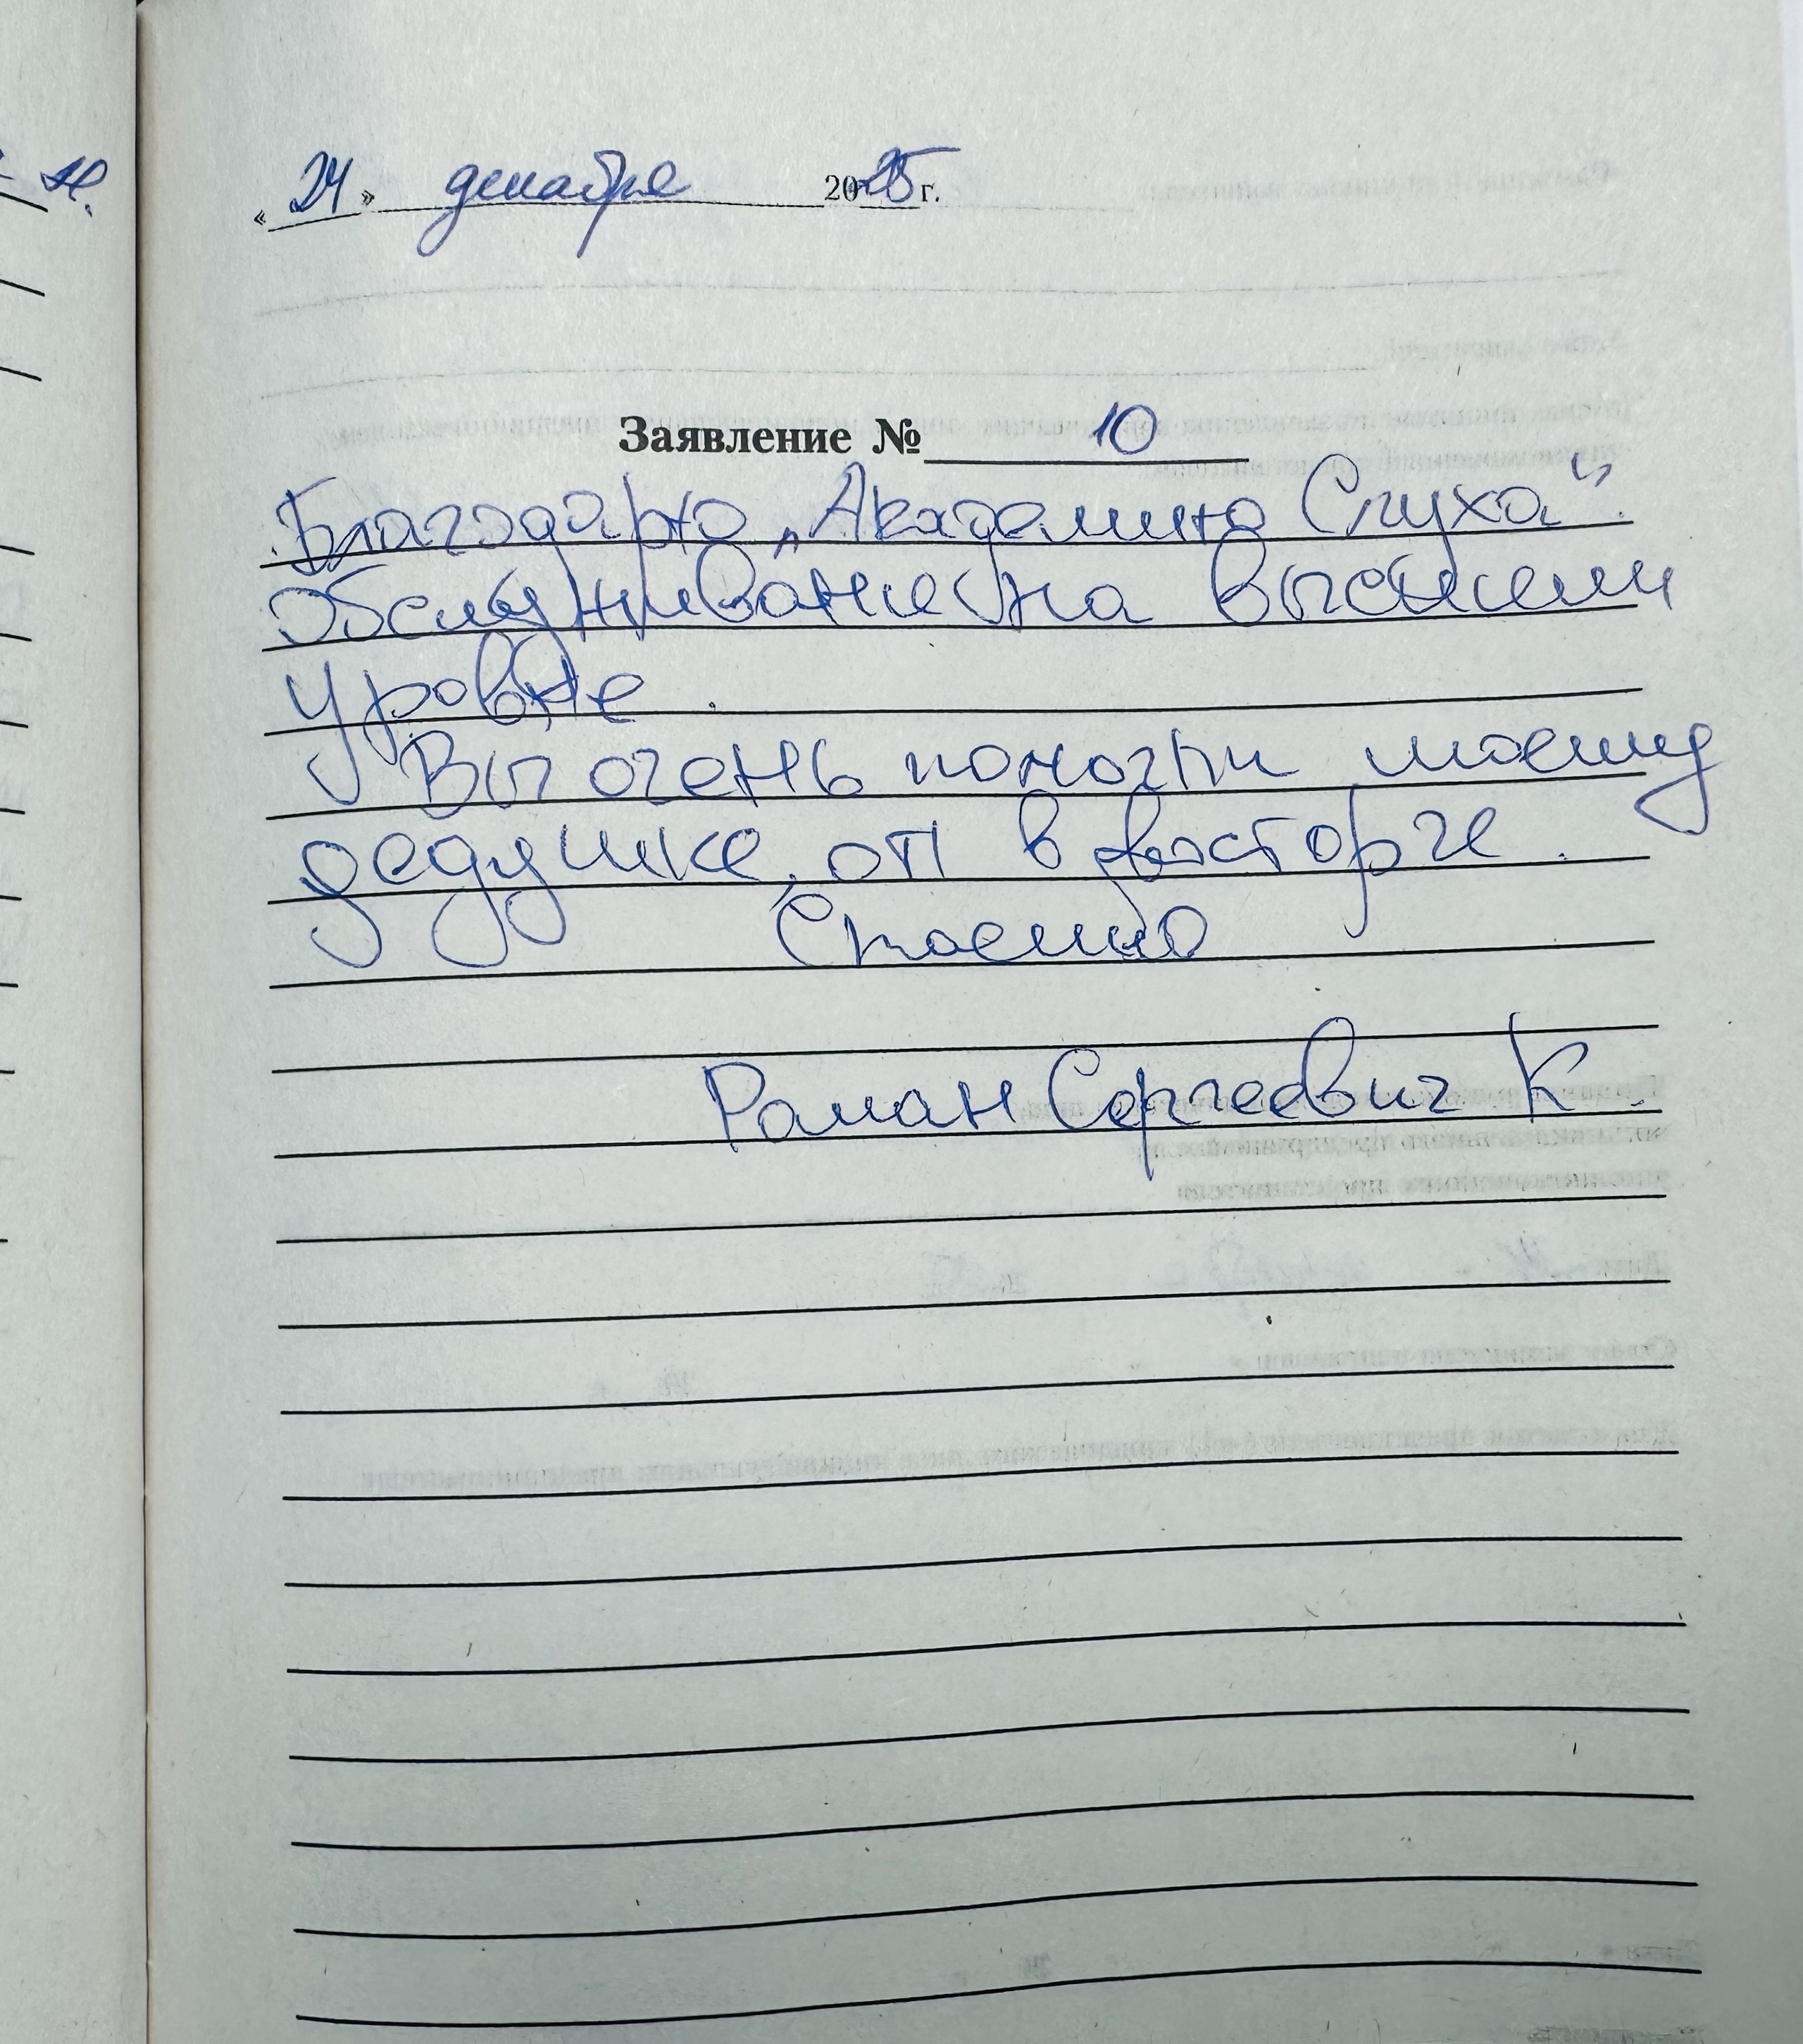 « 24 » декабря 2025 г.
Заявление № 10
Благодарю „Академию Слуха".
Обслуживание на высшем
уровне.
Вы очень помогли моему
дедушке, он в восторге.
Спасибо
Роман Сергеевич К.